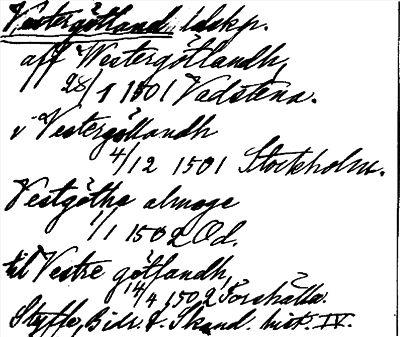 Vestergötland, ldskp.
aff Westergötlandh,
28/1 1501 Vadstena.
v Vestergötlandh
4/12 1501 Stockholm.
Vestgötha almoge
1/1 1502 Öd.
til Vestre götlandh,
14/4 1502 Torshälla.
Styffe, Bidr. t. Skand. hist. IV.